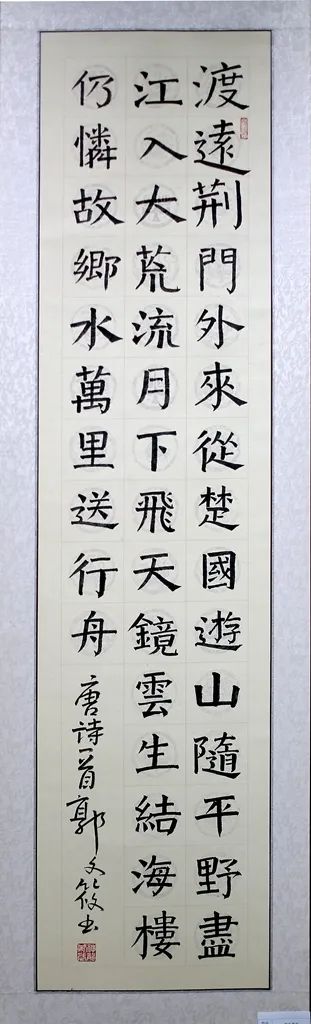 渡遠荆門外來從楚國遊山隨平野盡
江入大荒流月下飛天鏡雲生結海樓
仍憐故鄉水萬里送行舟
唐詩一首郭文筱书